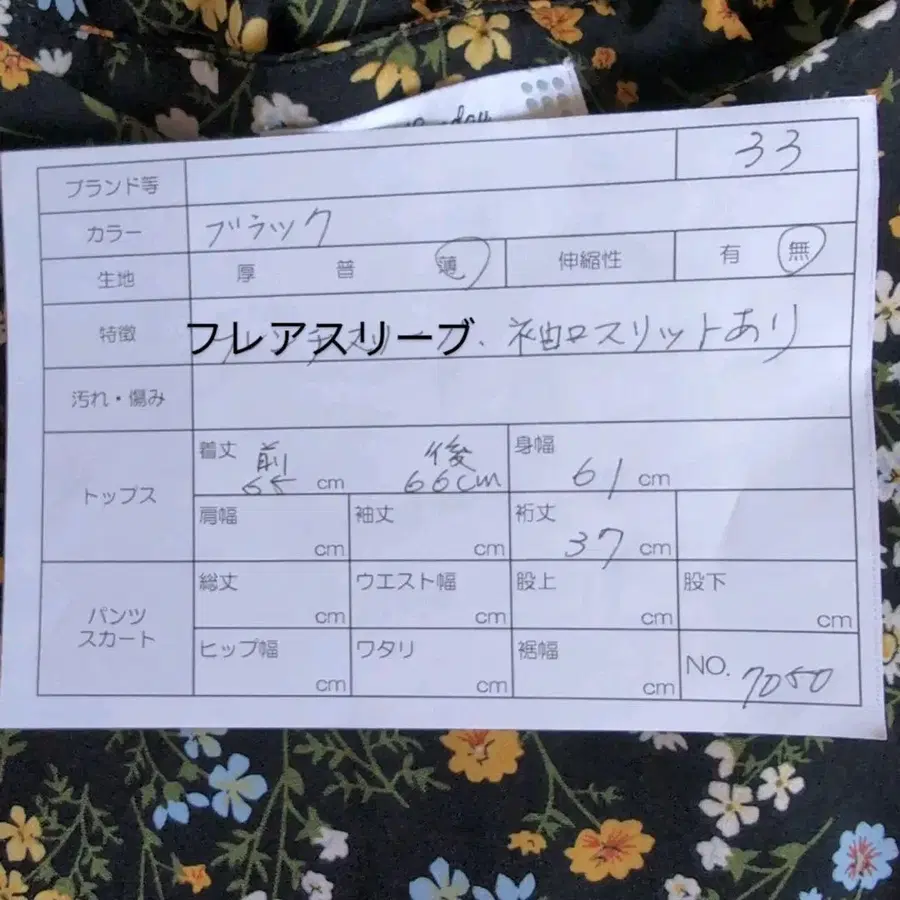 ブランド等 33
カラー ブラック
生地 厚 普 薄 伸縮性 有 無
特徴 フレアスリーブ、袖口スリットあり
汚れ・傷み
トップス
着丈 前 65 cm 後 66cm 身幅 61 cm
肩幅 cm 袖丈 cm 裄丈 37 cm
パンツ
スカート
総丈 cm ウエスト幅 cm 股上 cm 股下 cm
ヒップ幅 cm ワタリ cm 裾幅 cm NO. 7050